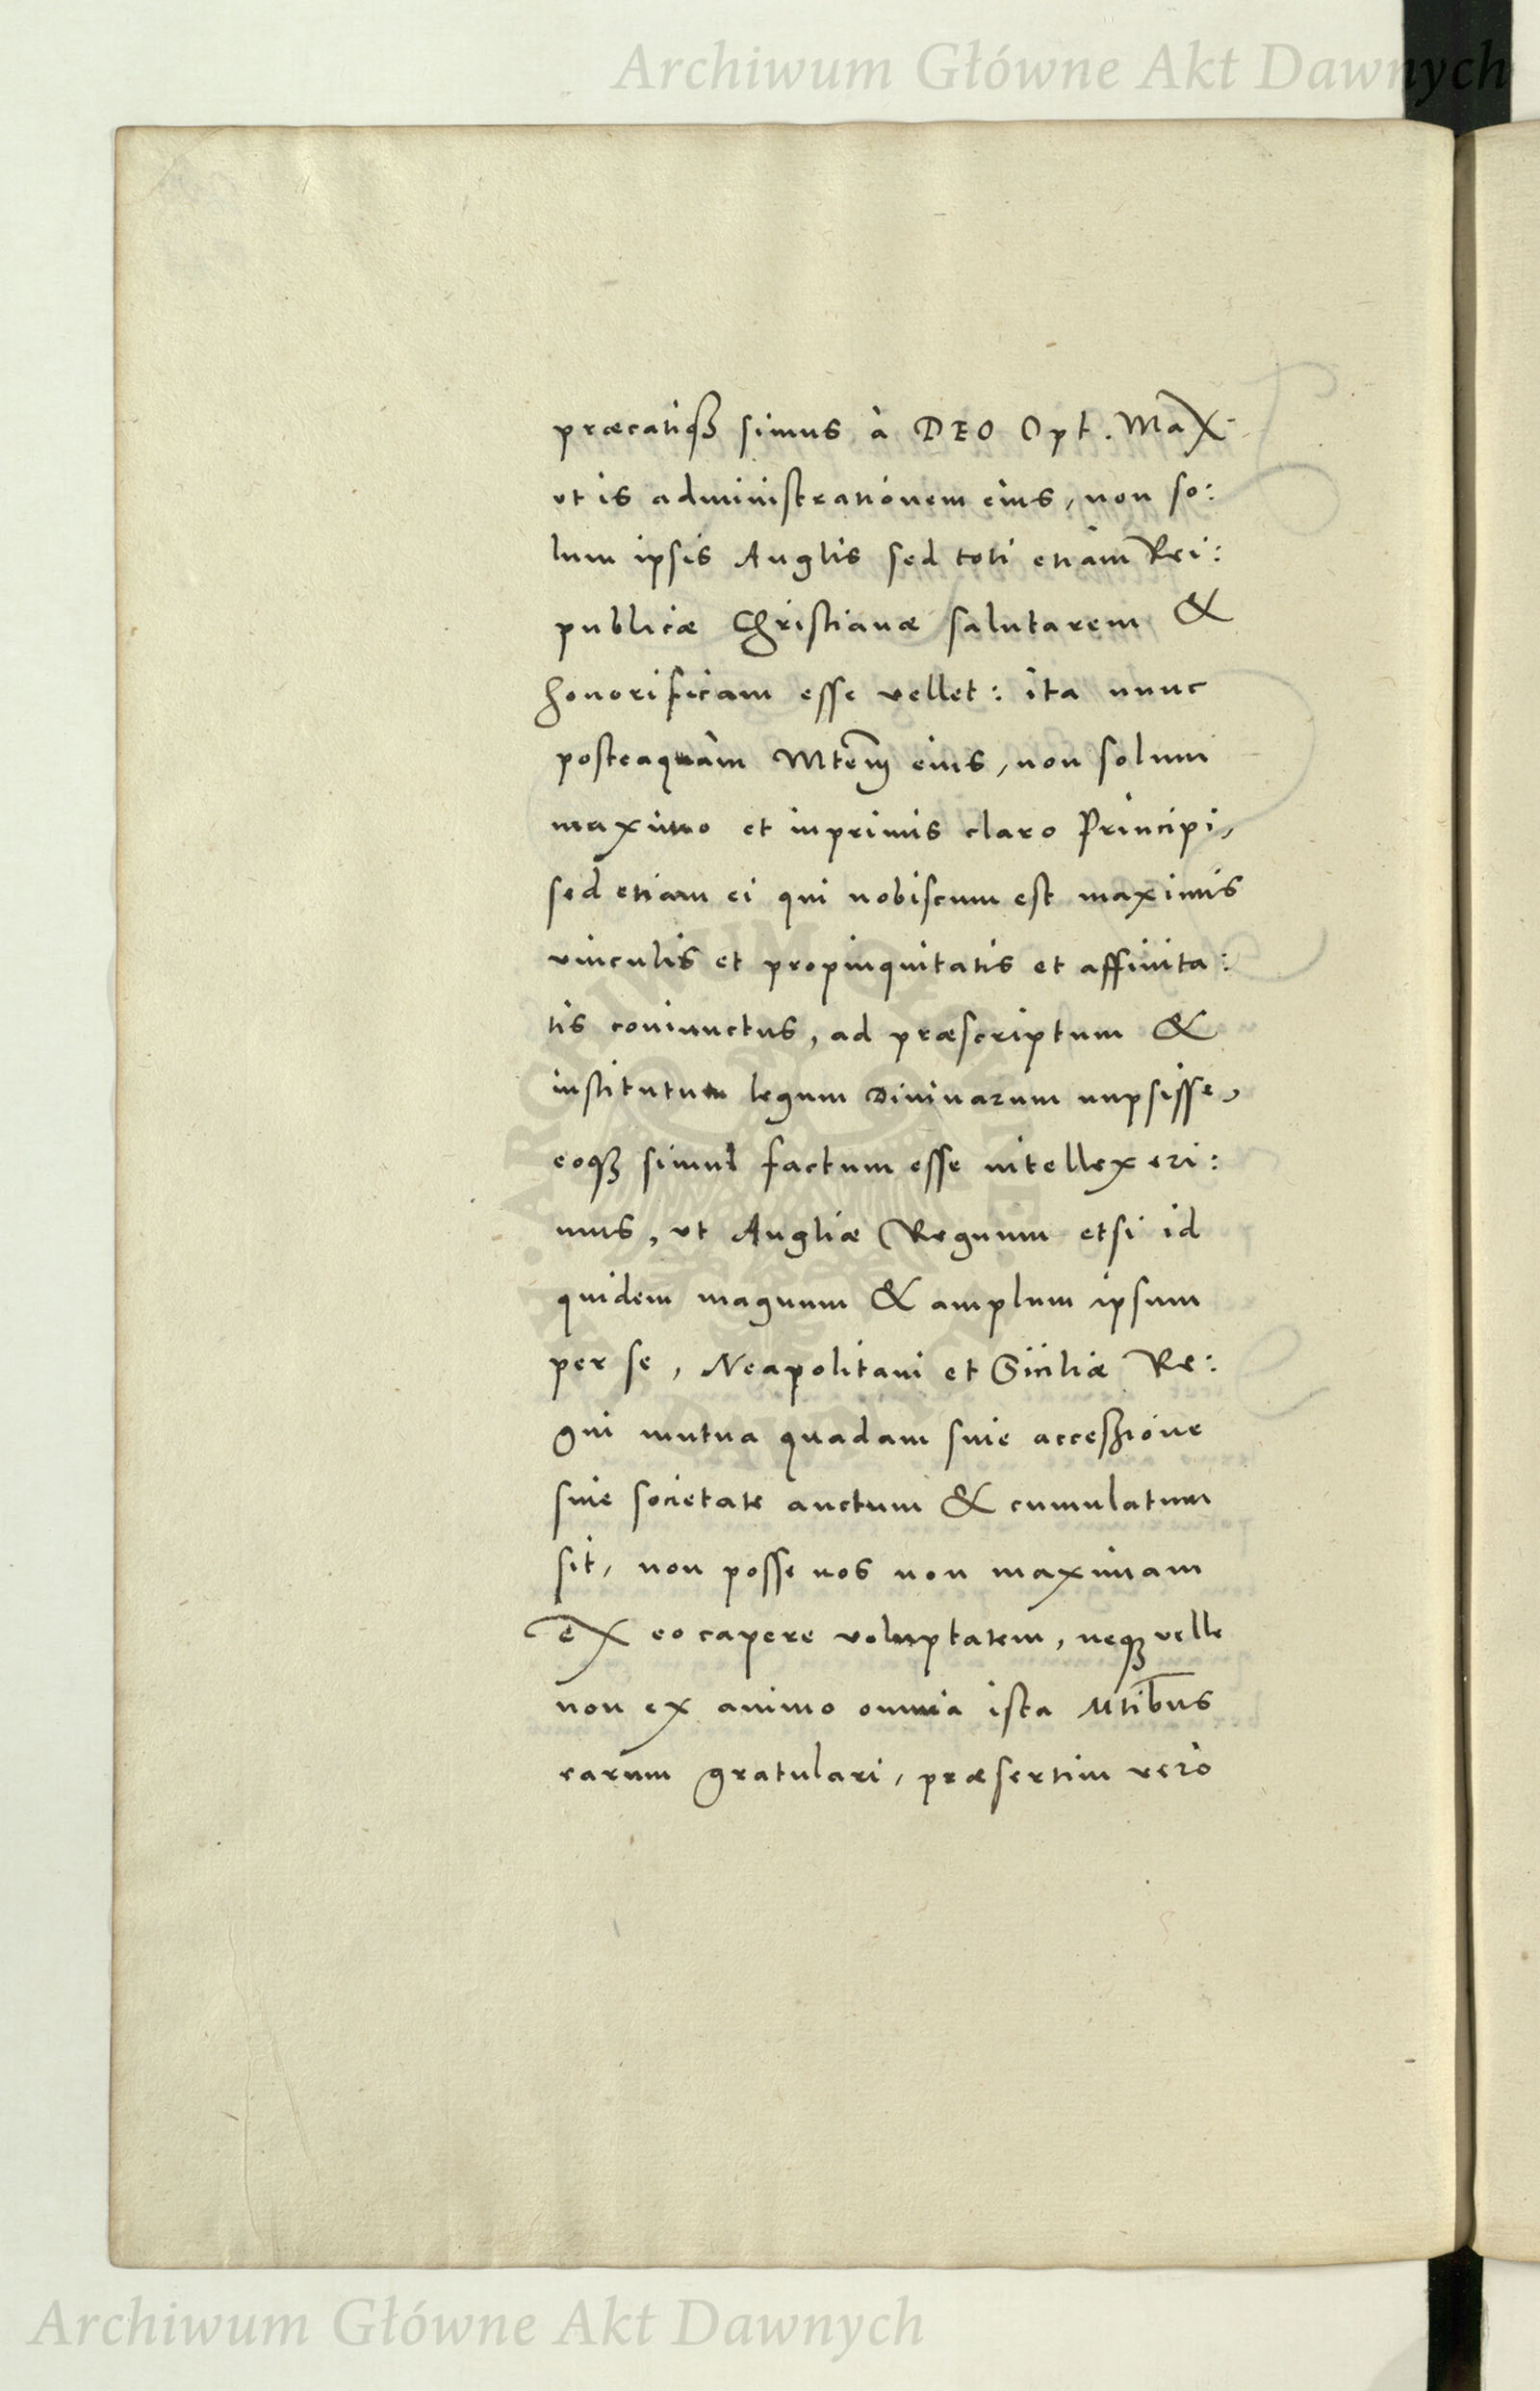 Archiwum Główne Akt Dawnych
præcatiqȝ simus à DEO Opt. Max
ut is administrationem eius, non so:
lum ipsis Anglis sed toti etiam Rei:
publicæ Christianæ salutarem &
honorificam esse vellet: ita nunc
posteaquàm Mtem̄ eius, non solum
maximo et inprimis claro Principi,
sed etiam ei qui nobiscum est maximis
vinculis et propinquitatis et affinita:
tis coniunctus, ad præscriptum &
institutum legum Divinarum nupsisse,
eoqȝ simul factum esse intellexeri:
mus, ut Angliæ Regnum etsi id
quidem magnum & amplum ipsum
per se, Neapolitani et Siciliæ Re:
gni mutua quadam siue accessione
siue societate auctum & cumulatum
sit, non posse nos non maximam
ex eo capere voluptatem, neqȝ velle
non ex animo omnia ista Mtib̄us
earum gratulari, præsertim verò
Archiwum Główne Akt Dawnych